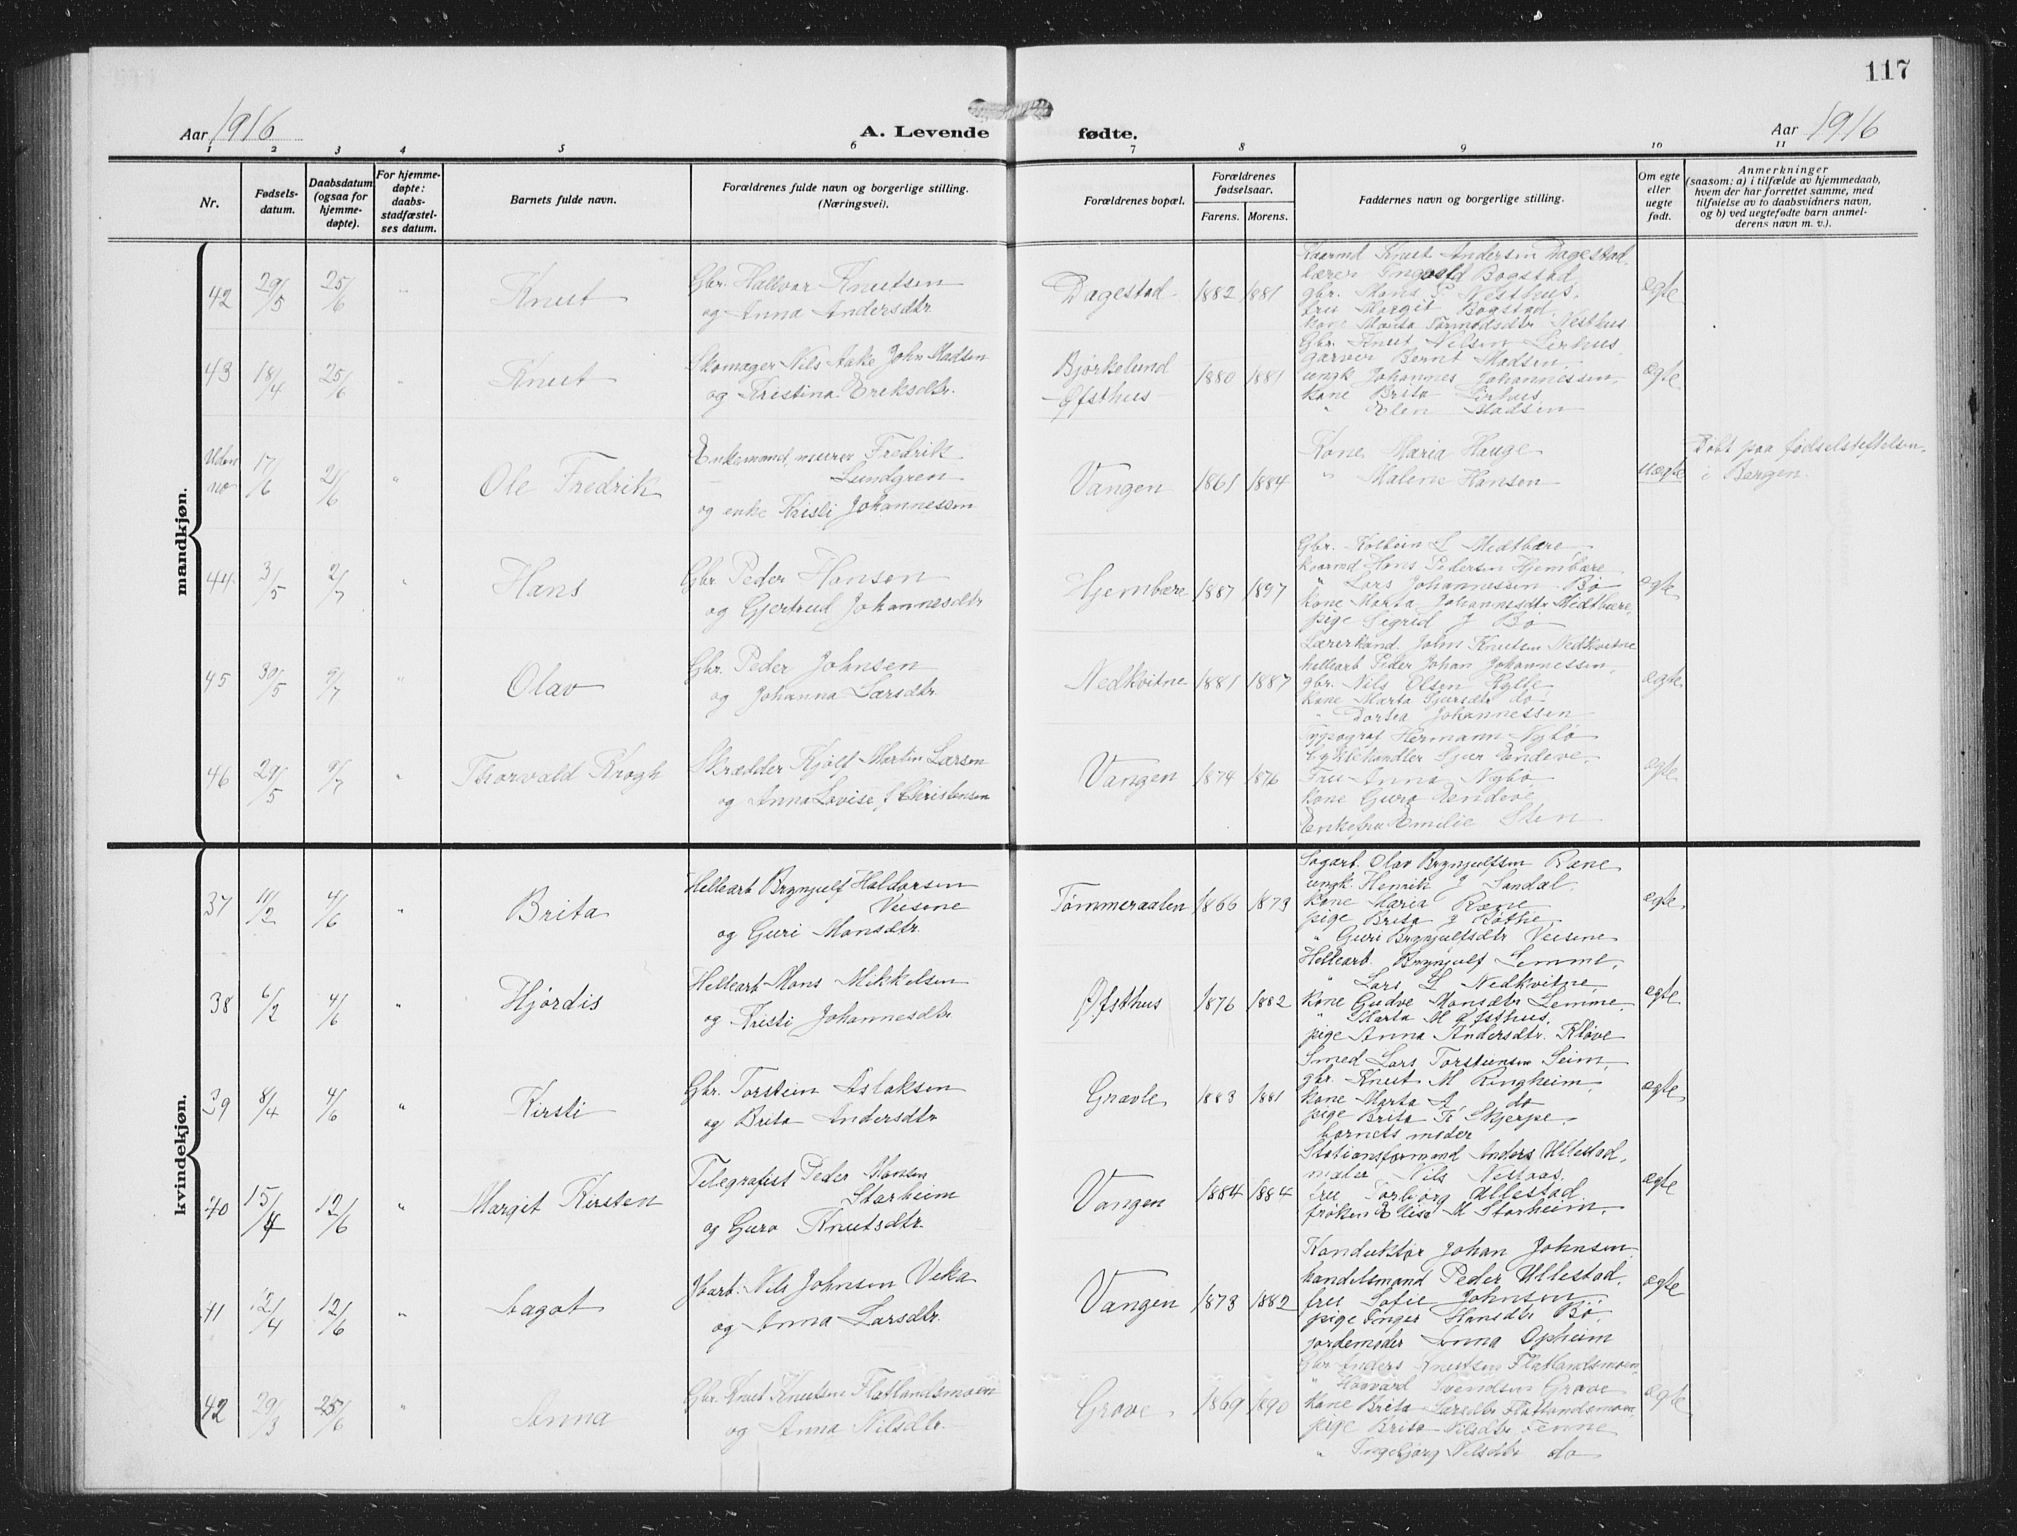 117
Aar 1916
A. Levende fødte.
Aar 1916
1 2 3 4 5 6 7 8 9 10 11
Nr.
Fødsels-
datum.
Daabsdatum
(ogsaa for
hjemme-
døpte).
For hjemme-
døpte:
daabs-
stadfæstel-
ses datum.
Barnets fulde navn.
Forældrenes fulde navn og borgerlige stilling.
(Næringsvei).
Forældrenes bopæl.
Forældrenes
fødselsaar.
Farens. Morens.
Faddernes navn og borgerlige stilling.
Om egte
eller
uegte
født.
Anmerkninger
(saasom: a) i tilfælde av hjemmedaab,
hvem der har forrettet samme, med
tilføielse av to daabsvidners navn,
og b) ved uegtefødte barn anmel-
derens navn m. v.).
mandkjøn.
42 29/5 25/6 " Knut
Gbr. Hallvar Knutsen
og Anna Andersdtr.
Dagestad 1882 1881
Kaarmd Knut Andersen Dagestad.
lærer Ingvald Bogstad
gbr. Mons P. Nesthus,
fru Margit Bogstad,
kone Marta Tormodsdtr Nesthus
egte
43 18/4 25/6 " Knut
Skomager Nils Aake John Madsen
og Kristina Eriksdtr.
Bjørkelund
Øfsthus
1880 1881
Gbr. Knut Nilsen Lirhus
garver Bernt Madsen,
ungk Johannes Johannessen,
kone Brita Lirhus,
" Elen Madsen
egte
Uden
no 17/6 21/6 " Ole Fredrik
Enkemand, murer Fredrik
Lundgren
og enke Kristi Johannessen
Vangen 1861 1884
Kone Maria Hauge
" Malene Hansen
uegte
Døbt paa fødselstiftelsen
i Bergen.
44 3/5 2/7 " Hans
Gbr. Peder Hansen
og Gjertrud Johannesdtr
Hjembære 1887 1897
Gbr. Kolbein L Medtbære
kaarmd Hans Pedersen Hjembære,
" Lars Johannessen Bø
kone Marta Johannesdtr Midtbære,
pige Sigrid J Bø
egte
45 30/5 9/7 " Olav
Gbr. Peder Johnsen
og Johanna Larsdtr.
Nedkvitne 1881 1887
Lærerkand. John Knutsen Nedkvitne
hellearb Peder Johan Johannessen,
gbr. Nils Olsen Kylle
kone Marta Sjursdtr do
" Dortea Johannessen
egte
46 29/5 9/7 " Thorvald Krogh
Skrædder Kjølf Martin Larsen
og Anna Lovise Christensen
Vangen 1874 1876
Typograf Hermann Nybø
Cyklehandler Sjur Rendeve,
Fru Anna Nybø
kone Guro Rendeve,
Enkefru Emilie Sten
egte
kvindekjøn.
37 11/2 4/6 " Brita
Hellearb Brynjulf Haldorsen
Veisene
og Guri Monsdtr.
Tømmeraalen 1866 1873
Sagarb. Olav Brynjulfsen Rene
ungk. Henrik J Sandal,
kone Maria Rene
pige Brita J Rothe
" Guri Brynjulfsdtr Veisene
egte
38 6/2 4/6 " Hjørdis
Hellearb Mons Mikkelsen
og Kristi Johannesdtr
Øfsthus 1876 1882
Hellearb. Brynjulf Lemme,
" Lars L Nedkvitne,
kone Gudve Monsdtr Lemme,
" Marta M Øfsthus,
pige Anna Andersdtr. Kløve
egte
39 8/4 4/6 " Kirsti
Gbr. Torstein Aslaksen
og Brita Andersdtr
Gravle 1883 1881
Smed Lars Torsteinsen Seim,
gbr. Knut M Ringheim,
kone Marta A do
pige Brita K Skjerpe,
barnets moder
egte
40 15/4 12/6 " Margit Kirsten
Telegrafist Peder Monsen
Starheim
og Guro Knutsdtr.
Vangen 1884 1884
Stationsformand Anders Ullestad,
maler Nils Nestaas,
fru Torbjørg Ullestad
frøken Elise M Starheim,
egte
41 12/4 12/6 " Aagot
Hbarb. Nils Johnsen Veka
og Anna Larsdtr.
Vangen 1873 1882
Konduktør Johan Johnsen
handelsmand Peder Ullestad,
fru Sofie Johnsen,
pige Inger Hansdtr Bø,
jordemoder Anna Opheim
egte
42 29/3 25/6 " Anna
Gbr. Knut Knutsen Flatlandsmoen
og Anna Nilsdtr.
Grove 1869 1890
Gbr Anders Knutsen Flatlandsmoen
" Haavard Svendsen Grove
kone Brita Larsdtr Flatlandsmoen,
pige Brita Nilsdtr Fenne
" Ingebjørg Nilsdtr do
egte